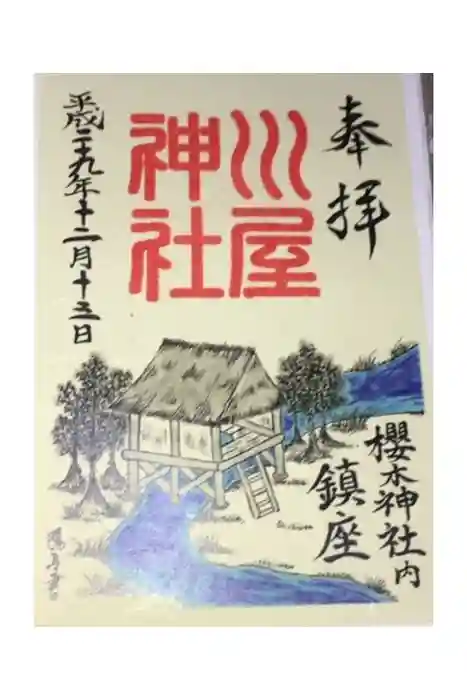 奉拝
川屋
神社
平成二十九年十二月十三日
櫻木神社内
鎮座